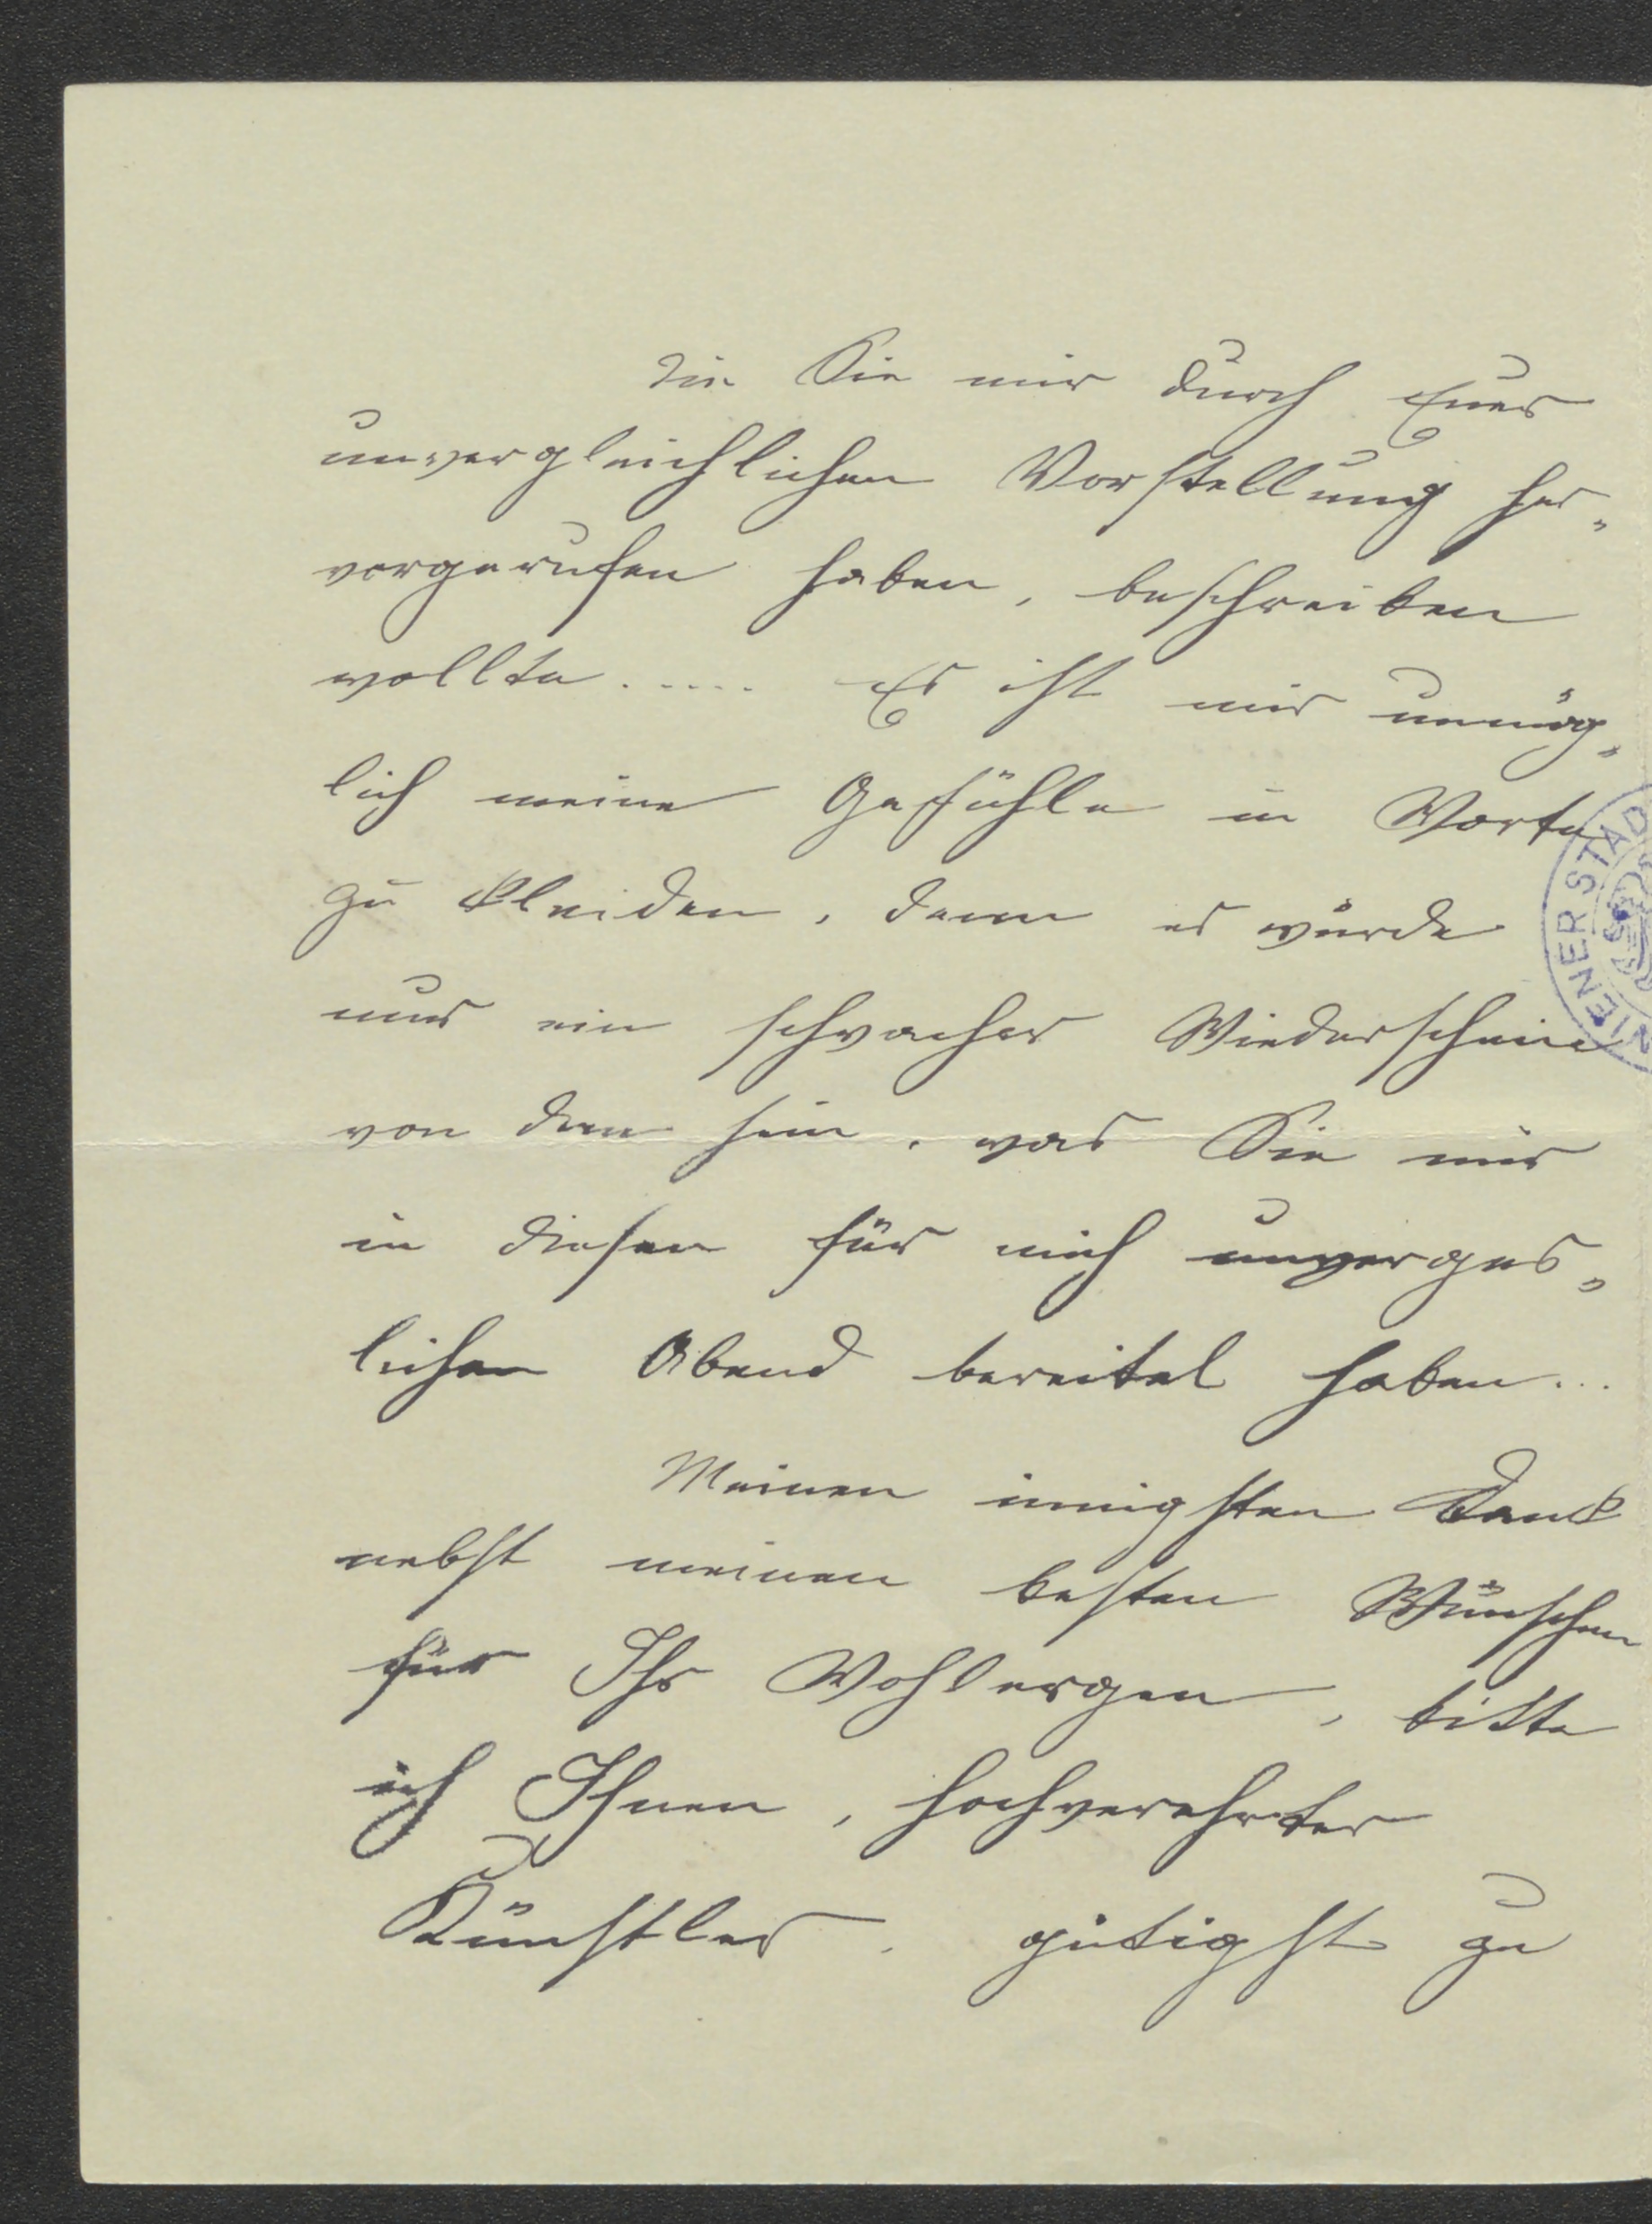 die Sie mir durch Euer
unvergleichlichen Vorstellung her„
vorgerufen haben, beschreiben
wollte..... Es ist mir unmög„
lich meine Gefühle in Worte
zu kleiden, denn es würde
nur ein schwacher Wiederschein
von dem sein, was Sie mir
in diesen für mich unverges„
lichen Abend bereitet haben...
Meinen innigsten Dank
nebst meinen besten Wünschen
für Ihr Wohlergen, bitte
ich Ihnen, hochverehrter
Künstler, gütigst zu
WIENER STAD